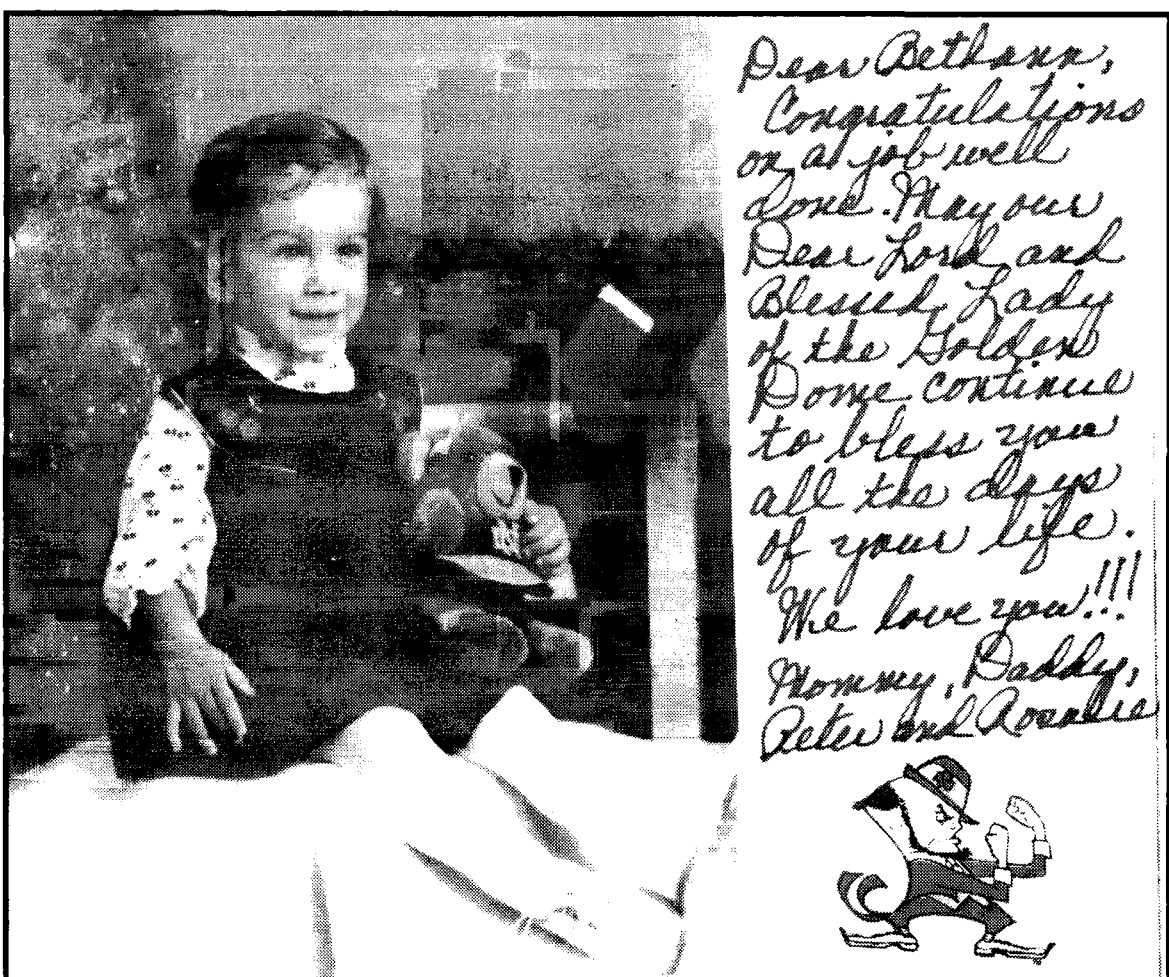 Dear Bethann,
Congratulations
on a job well
done. May our
Dear Lord and
Blessed Lady
of the Golden
Dome continue
to bless you
all the days
of your life.
We love you!!!
Mommy, Daddy,
Peter and Rosalie